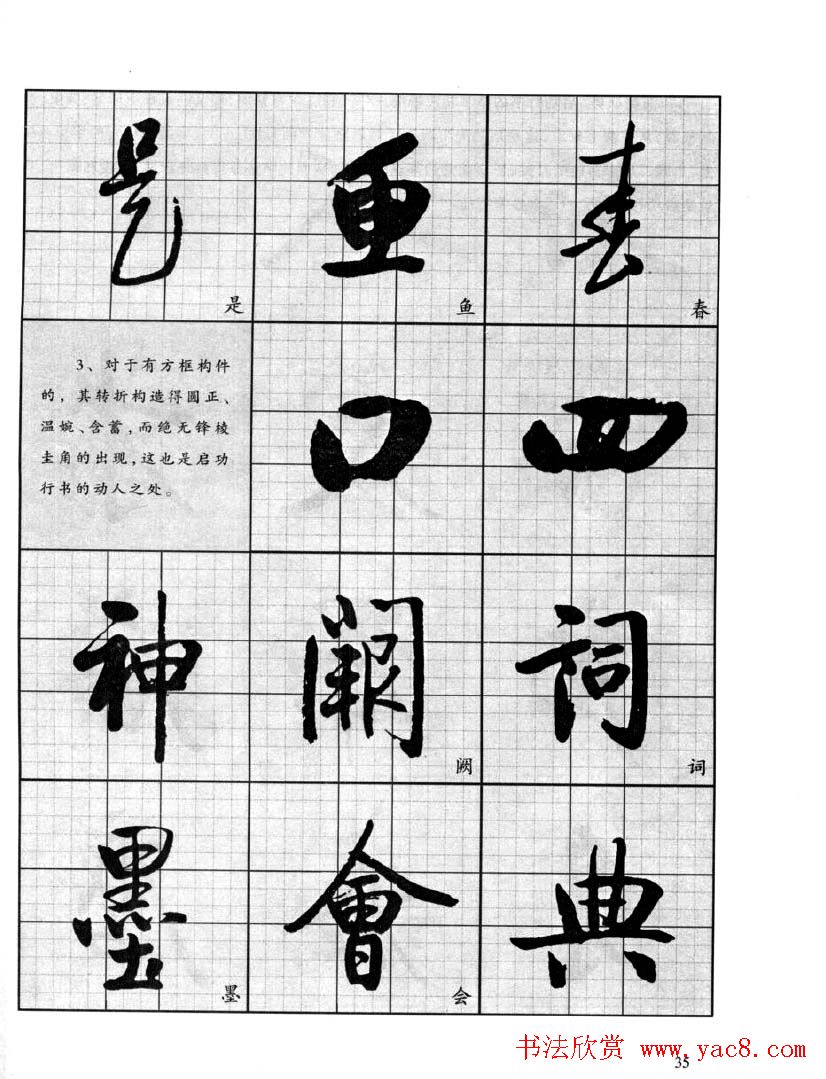 是 鱼 春
是 鱼 春
3、对于有方框构件
的，其转折构造得圆正、
温婉、含蓄，而绝无锋棱
圭角的出现，这也是启功
行书的动人之处。
口 四
神 阙 词
阙 词
墨 會 典
墨 会
书法欣赏 www.yac8.com
35